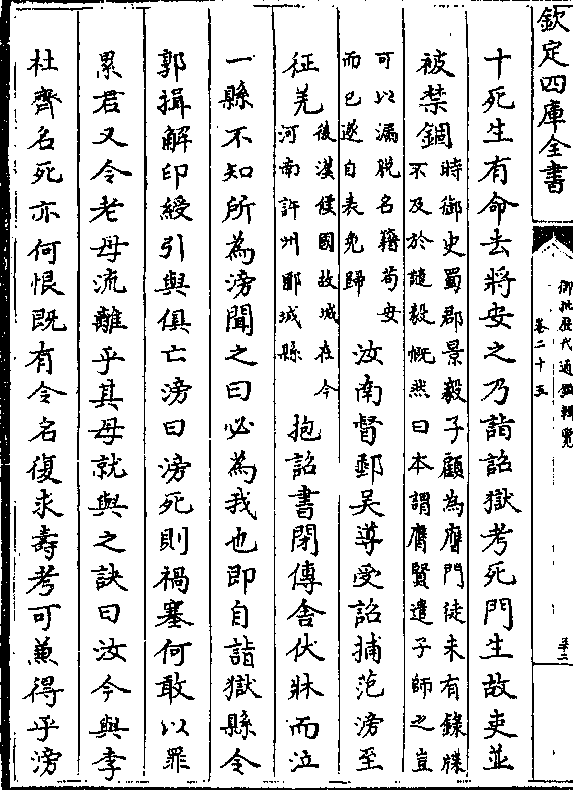 欽定四庫全書
御批歷代通鑑輯覽
卷二十五
十死生有命去將安之乃詣詔獄考死門生故吏並
被禁錮
時御史蜀郡景毅子顧為膺門徒未有錄牒
不及於譴毅慨然曰本謂膺賢遣子師之豈
可以漏脱名籍苟安
而已遂自表免歸
汝南督郵吳導受詔捕范滂至
征羌
後漢侯國故城在今
河南許州郾城縣
抱詔書閉傳舍伏牀而泣
一縣不知所為滂聞之曰必為我也即自詣獄縣令
郭揖解印綬引與俱亡滂曰滂死則禍塞何敢以罪
累君又令老母流離乎其母就與之訣曰汝今與李
杜齊名死亦何恨既有令名復求壽考可兼得乎滂